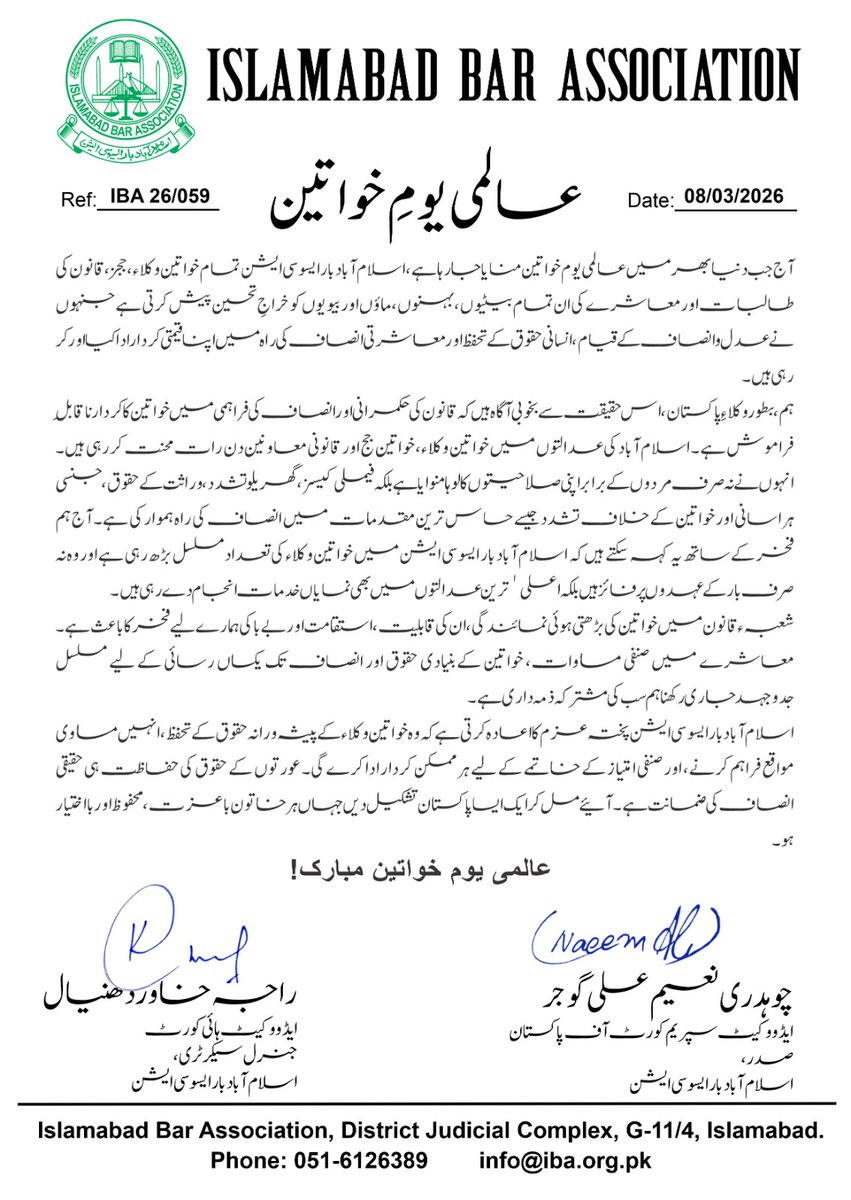 ISLAMABAD BAR ASSOCIATION
ISLAMABAD BAR ASSOCIATION
اسلام آباد بار ایسوسی ایشن
Ref: IBA 26/059
عالمی یومِ خواتین
Date: 08/03/2026
آج جب دنیا بھر میں عالمی یوم خواتین منایا جا رہا ہے، اسلام آباد بار ایسوسی ایشن تمام خواتین وکلاء، ججز، قانون کی
طالبات اور معاشرے کی ان تمام بیٹیوں، بہنوں، ماؤں اور بیویوں کو خراجِ تحسین پیش کرتی ہے جنہوں
نے عدل و انصاف کے قیام، انسانی حقوق کے تحفظ اور معاشرتی انصاف کی راہ میں اپنا قیمتی کردار ادا کیا اور کر
رہی ہیں۔
ہم، بطور وکلاءِ پاکستان، اس حقیقت سے بخوبی آگاہ ہیں کہ قانون کی حکمرانی اور انصاف کی فراہمی میں خواتین کا کردار ناقابلِ
فراموش ہے۔ اسلام آباد کی عدالتوں میں خواتین وکلاء، خواتین جج اور قانونی معاونین دن رات محنت کر رہی ہیں۔
انہوں نے نہ صرف مردوں کے برابر اپنی صلاحیتوں کا لوہا منوایا ہے بلکہ فیملی کیسز، گھریلو تشدد، وراثت کے حقوق، جنسی
ہراسانی اور خواتین کے خلاف تشدد جیسے حساس ترین مقدمات میں انصاف کی راہ ہموار کی ہے۔ آج ہم
فخر کے ساتھ یہ کہہ سکتے ہیں کہ اسلام آباد بار ایسوسی ایشن میں خواتین وکلاء کی تعداد مسلسل بڑھ رہی ہے اور وہ نہ
صرف بار کے عہدوں پر فائز ہیں بلکہ اعلی ' ترین عدالتوں میں بھی نمایاں خدمات انجام دے رہی ہیں۔
شعبہء قانون میں خواتین کی بڑھتی ہوئی نمائندگی، ان کی قابلیت، استقامت اور بے باکی ہمارے لیے فخر کا باعث ہے۔
معاشرے میں صنفی مساوات، خواتین کے بنیادی حقوق اور انصاف تک یکساں رسائی کے لیے مسلسل
جدوجہد جاری رکھنا ہم سب کی مشترکہ ذمہ داری ہے۔
اسلام آباد بار ایسوسی ایشن پختہ عزم کا اعادہ کرتی ہے کہ وہ خواتین وکلاء کے پیشہ ورانہ حقوق کے تحفظ، انہیں مساوی
مواقع فراہم کرنے، اور صنفی امتیاز کے خاتمے کے لیے ہر ممکن کردار ادا کرے گی۔ عورتوں کے حقوق کی حفاظت ہی حقیقی
انصاف کی ضمانت ہے۔ آئیے مل کر ایک ایسا پاکستان تشکیل دیں جہاں ہر خاتون باعزت، محفوظ اور بااختیار
ہو۔
عالمی یوم خواتین مبارک!
(Naeem Ali)
چوہدری نعیم علی گوجر
ایڈووکیٹ سپریم کورٹ آف پاکستان
صدر،
اسلام آباد بار ایسوسی ایشن
راجہ خاور دھنیال
ایڈووکیٹ ہائی کورٹ
جنرل سیکرٹری،
اسلام آباد بار ایسوسی ایشن
Islamabad Bar Association, District Judicial Complex, G-11/4, Islamabad.
Phone: 051-6126389 info@iba.org.pk